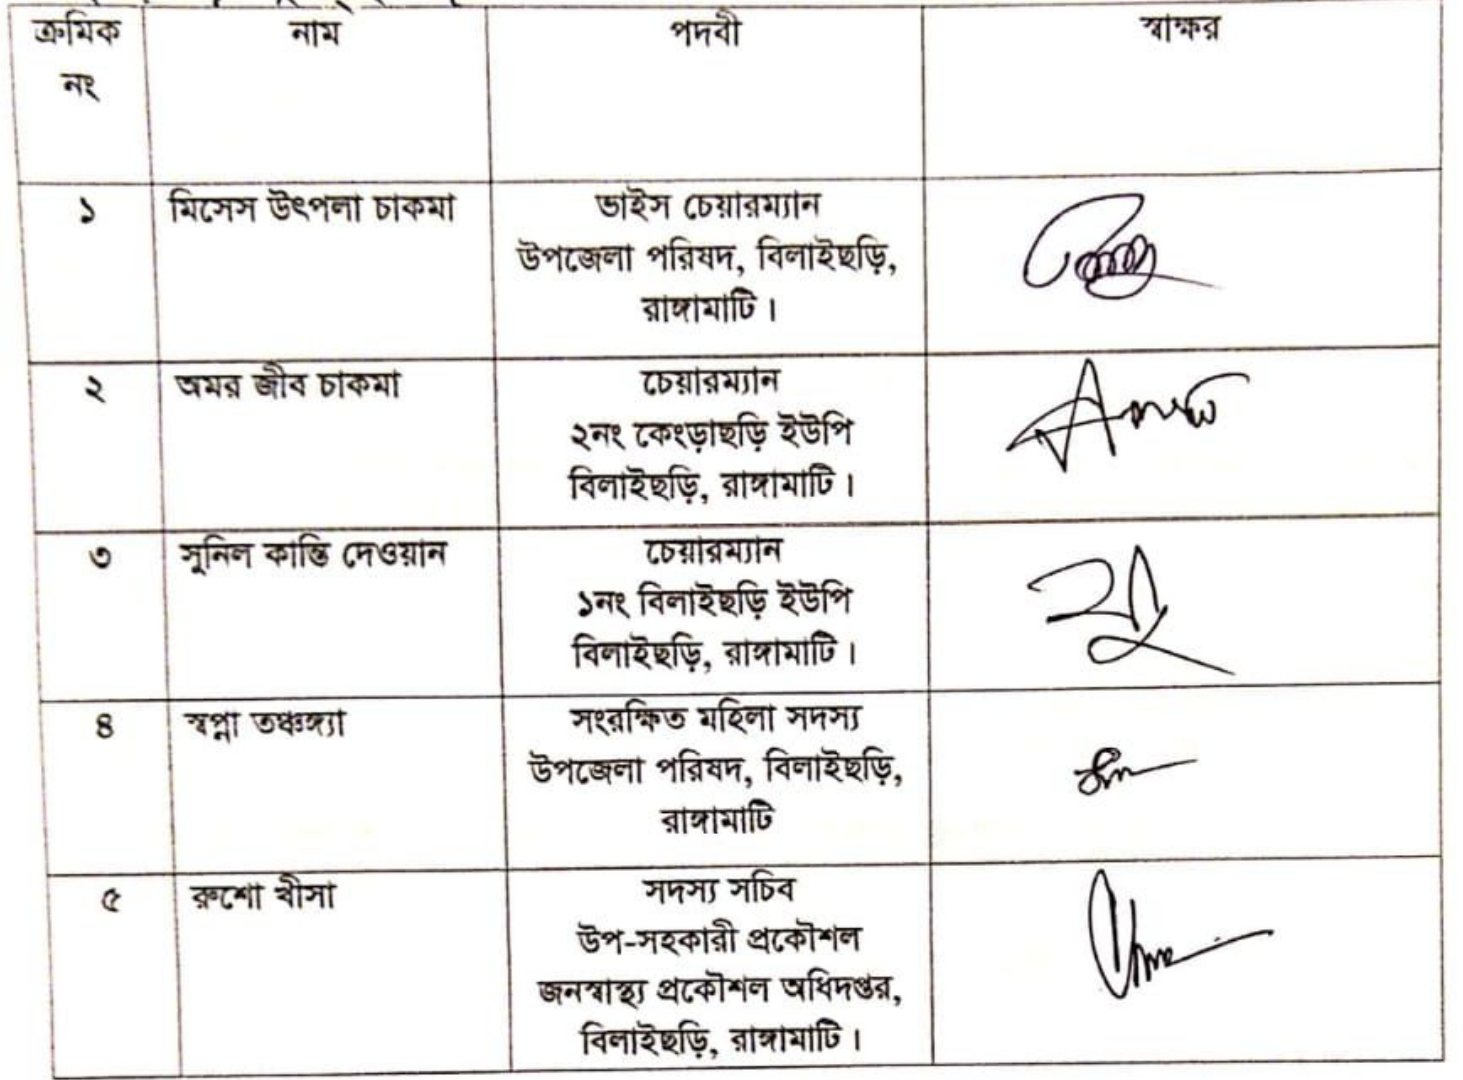 ক্রমিক নং
নাম
পদবী
স্বাক্ষর
১
মিসেস উৎপলা চাকমা
ভাইস চেয়ারম্যান
উপজেলা পরিষদ, বিলাইছড়ি,
রাঙ্গামাটি।
২
অমর জীব চাকমা
চেয়ারম্যান
২নং কেংড়াছড়ি ইউপি
বিলাইছড়ি, রাঙ্গামাটি।
৩
সুনিল কান্তি দেওয়ান
চেয়ারম্যান
১নং বিলাইছড়ি ইউপি
বিলাইছড়ি, রাঙ্গামাটি।
৪
স্বপ্না তঞ্চঙ্গ্যা
সংরক্ষিত মহিলা সদস্য
উপজেলা পরিষদ, বিলাইছড়ি,
রাঙ্গামাটি
৫
রুশো খীসা
সদস্য সচিব
উপ-সহকারী প্রকৌশল
জনস্বাস্থ্য প্রকৌশল অধিদপ্তর,
বিলাইছড়ি, রাঙ্গামাটি।